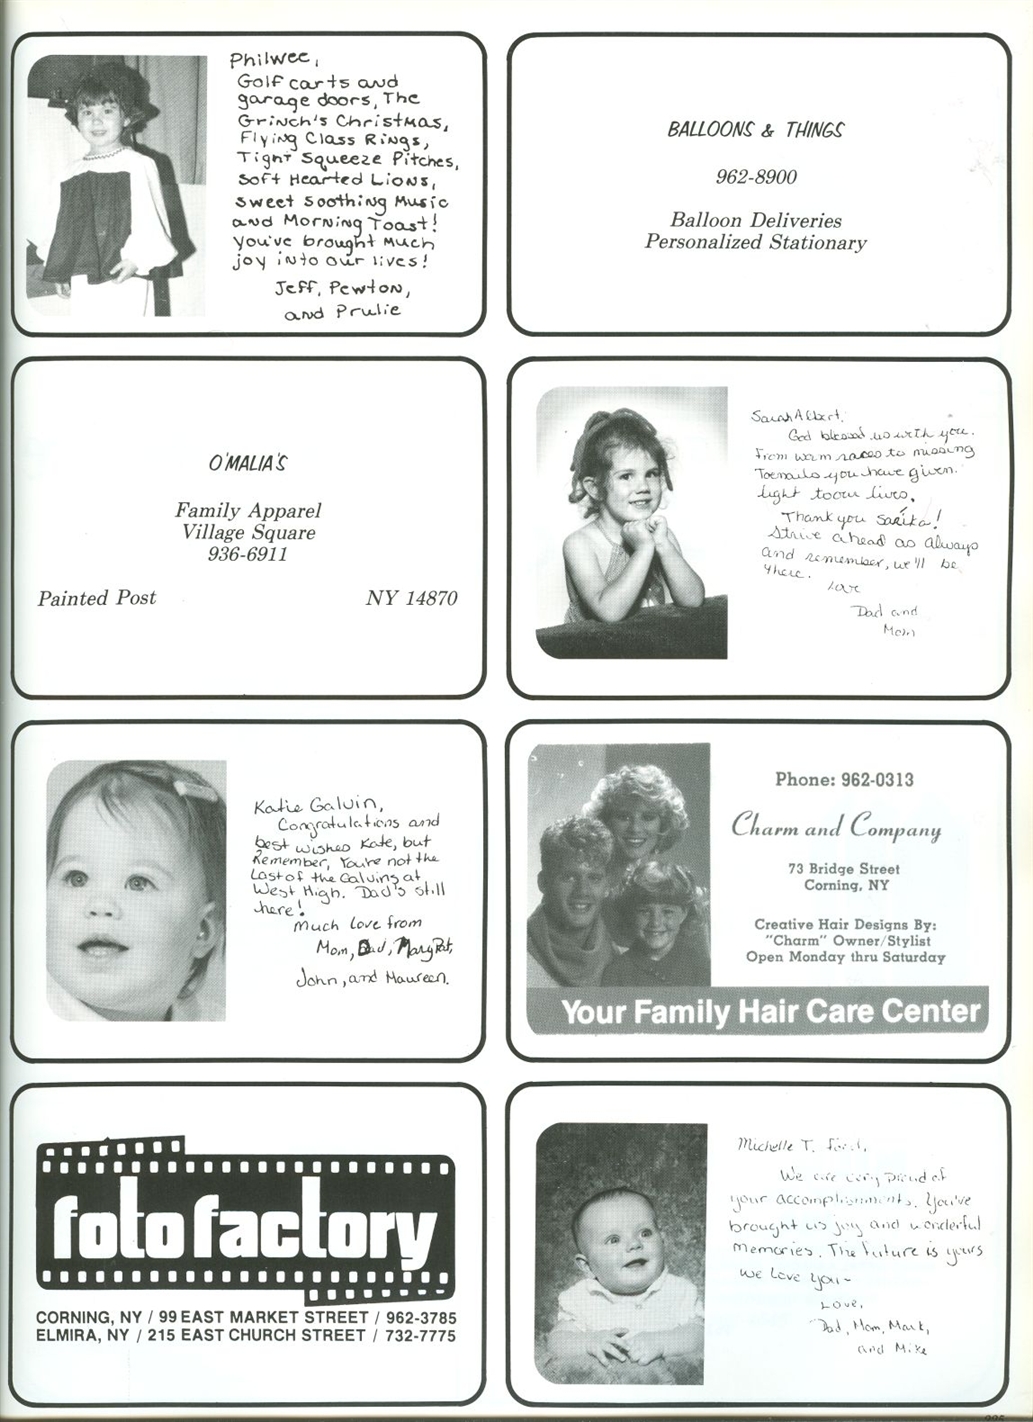 Philwee,
Golf carts and
garage doors, The
Grinch's Christmas,
Flying Class Rings,
Tight Squeeze Pitches,
Soft Hearted Lions,
Sweet Soothing Music
and Morning Toast!
You've brought Much
joy into our lives!
Jeff, Pewton,
and Prulie
BALLOONS & THINGS
962-8900
Balloon Deliveries
Personalized Stationary
O'MALIA'S
Family Apparel
Village Square
936-6911
Painted Post NY 14870
Sarah Albert,
God blessed us with you.
From warm races to missing
Toenails you have given
light to our lives.
Thank you Sarika!
Strive ahead as always
and remember, we'll be
there.
Love
Dad and
Mom
Katie Galvin,
Congratulations and
best wishes Kate, but
Remember, You're not the
Last of the Galvins at
West High. Dad's still
here!
Much Love from
Mom, Dad, Mary Pat,
John, and Maureen.
Phone: 962-0313
Charm and Company
73 Bridge Street
Corning, NY
Creative Hair Designs By:
"Charm" Owner/Stylist
Open Monday thru Saturday
Your Family Hair Care Center
foto factory
CORNING, NY / 99 EAST MARKET STREET / 962-3785
ELMIRA, NY / 215 EAST CHURCH STREET / 732-7775
Michelle T.
We are very proud of
your accomplishments. You've
brought us joy and wonderful
memories. The future is yours
We Love you~
Love,
Dad, Mom, Mark,
and Mike